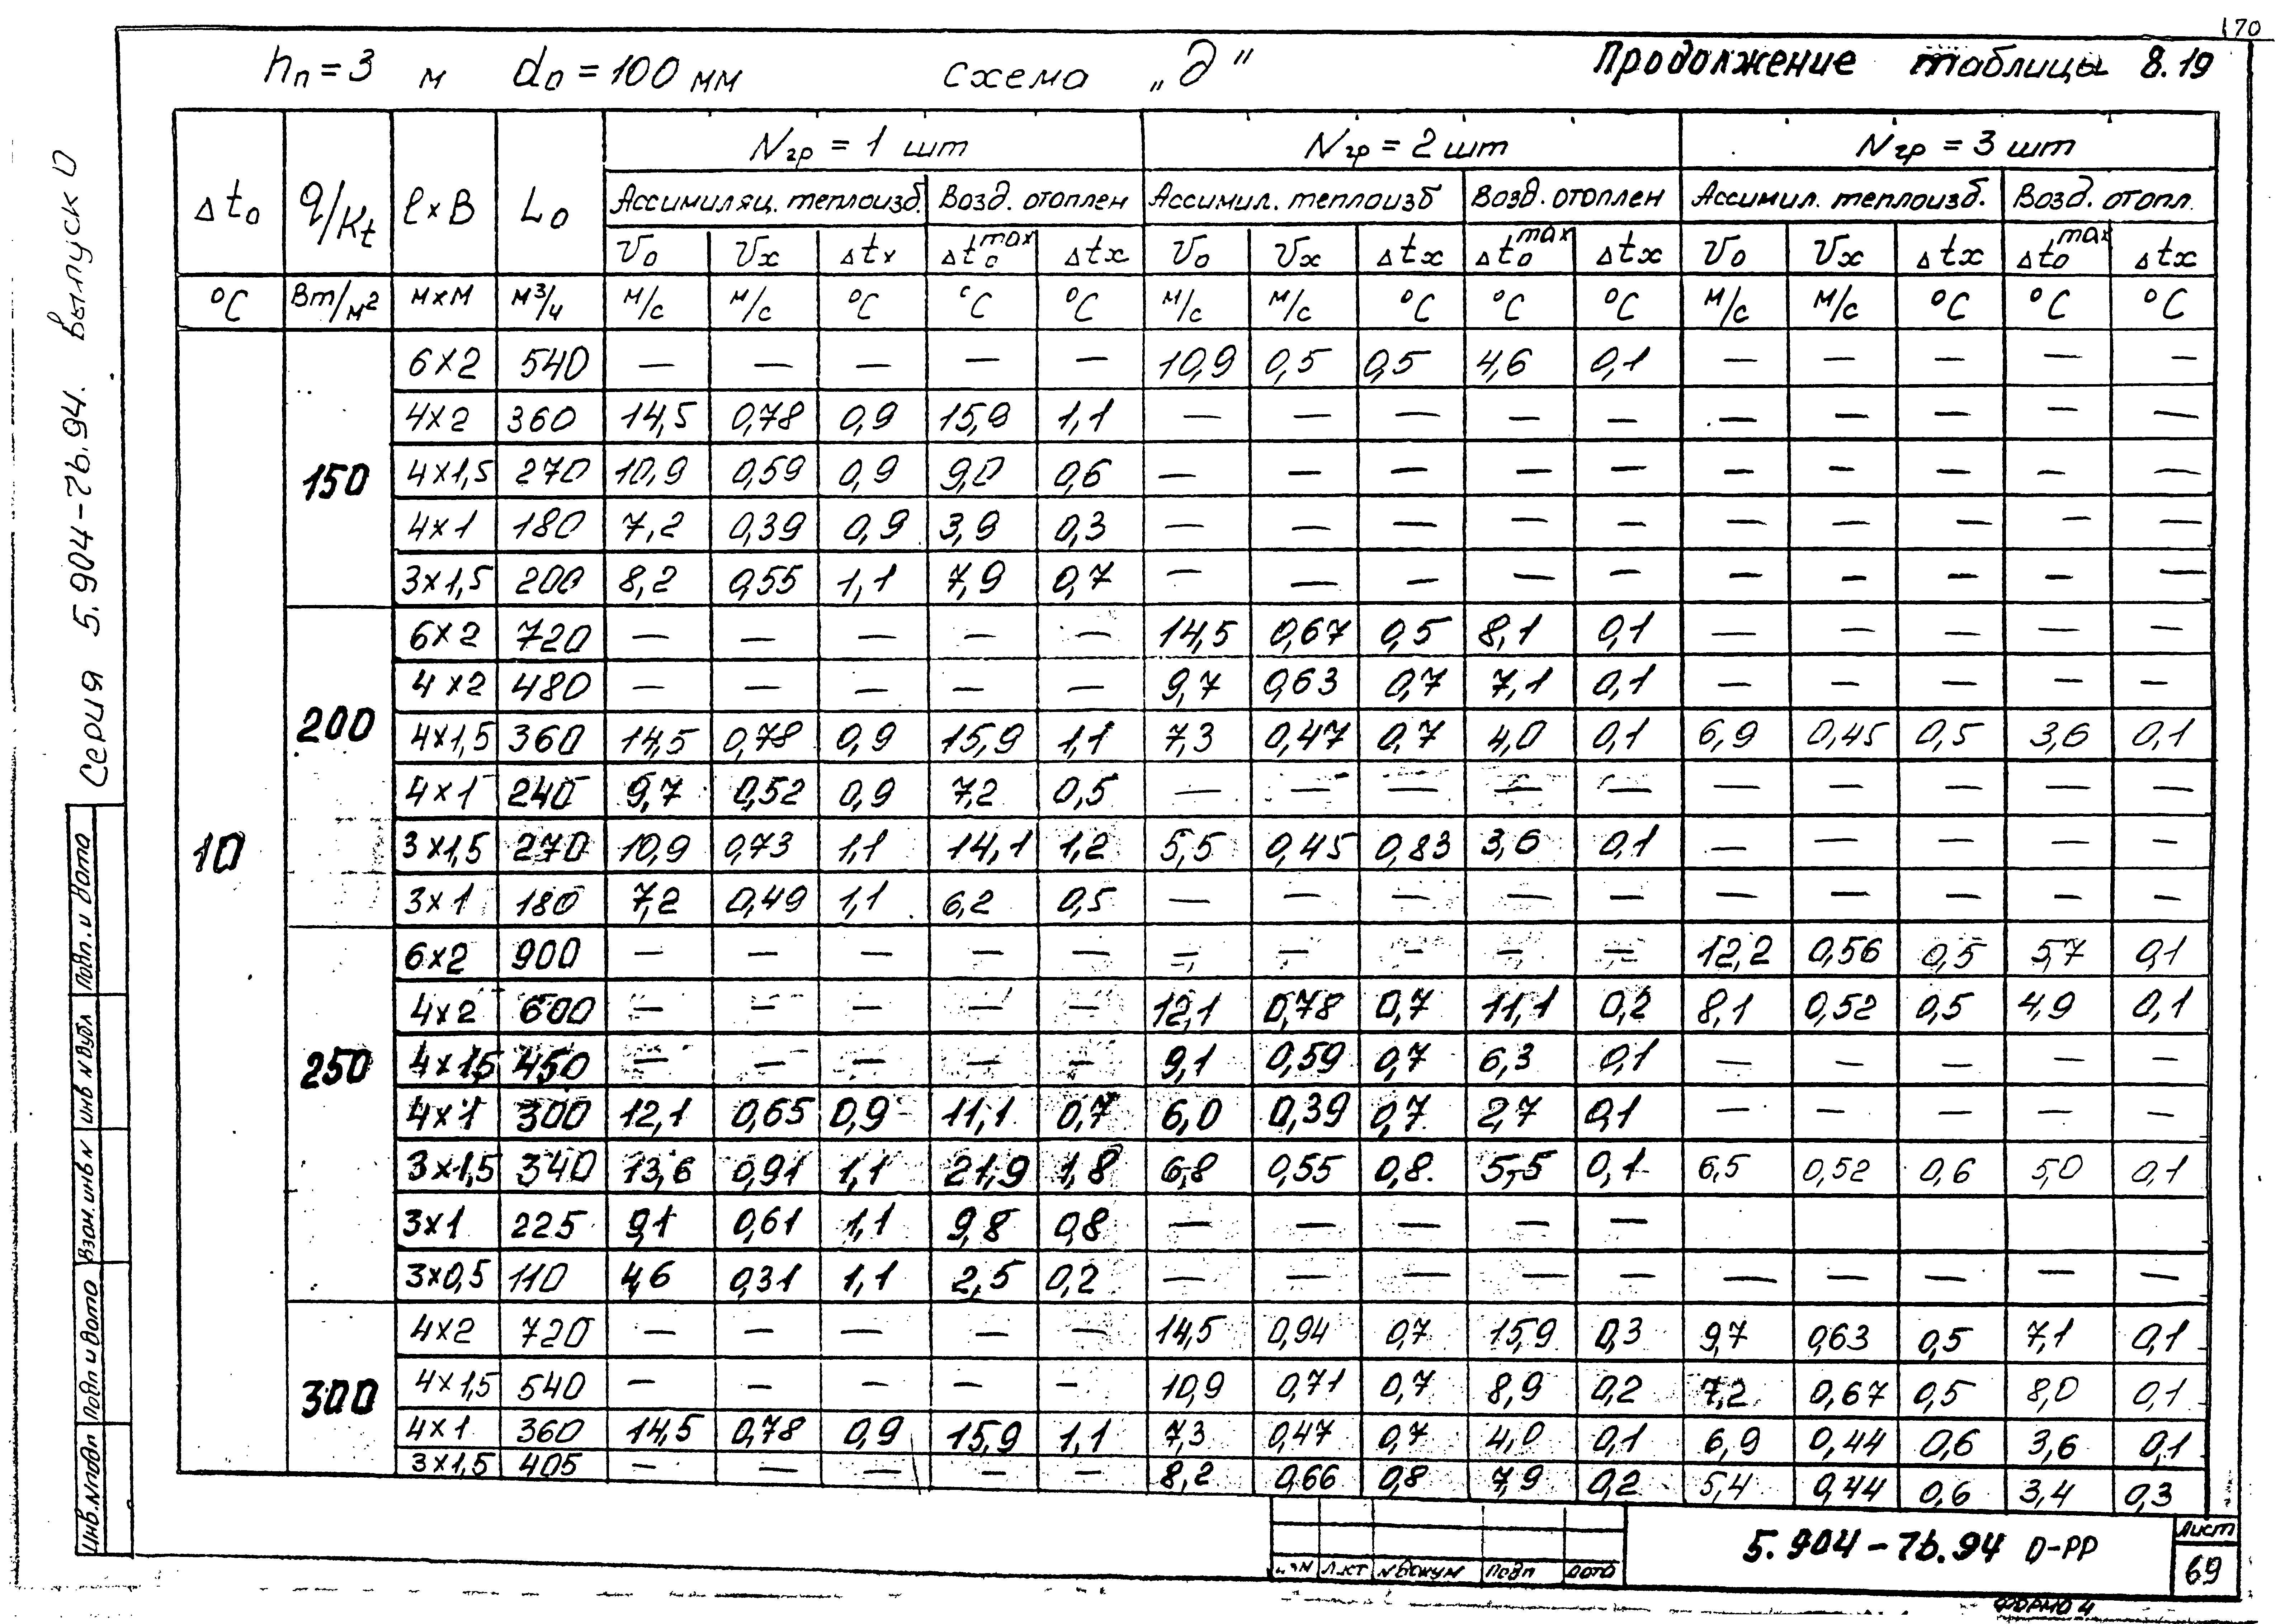 170
hп = 3 м dо = 100 мм схема „д" Продолжение таблицы 8.19
Серия 5.904-7в.94. выпуск 0
Δtо q/kt l×B Lо Nгр = 1 шт Nгр = 2 шт Nгр = 3 шт
Ассимиляц. теплоизб. Возд. отоплен Ассимил. теплоизб Возд. отоплен Ассимил. теплоизб. Возд. отопл.
Vо Vx Δtx Δtо max Δtx Vо Vx Δtx Δtо max Δtx Vо Vx Δtx Δtо max Δtx
°C Вт/м² м×м м³/ч м/с м/с °C °C °C м/с м/с °C °C °C м/с м/с °C °C °C
10
150
6×2 540 — — — — — 10,9 0,5 0,5 4,6 0,1 — — — — —
4×2 360 14,5 0,78 0,9 15,9 1,1 — — — — — — — — — —
4×1,5 270 10,9 0,59 0,9 9,0 0,6 — — — — — — — — — —
4×1 180 7,2 0,39 0,9 3,9 0,3 — — — — — — — — — —
3×1,5 200 8,2 0,55 1,1 7,9 0,7 — — — — — — — — — —
200
6×2 720 — — — — — 14,5 0,67 0,5 8,1 0,1 — — — — —
4×2 480 — — — — — 9,7 0,63 0,7 7,1 0,1 — — — — —
4×1,5 360 14,5 0,78 0,9 15,9 1,1 7,3 0,47 0,7 4,0 0,1 6,9 0,45 0,5 3,6 0,1
4×1 240 9,7 0,52 0,9 7,2 0,5 — — — — — — — — — —
3×1,5 270 10,9 0,73 1,1 14,1 1,2 5,5 0,45 0,83 3,6 0,1 — — — — —
3×1 180 7,2 0,49 1,1 6,2 0,5 — — — — — — — — — —
250
6×2 900 — — — — — — — — — — 12,2 0,56 0,5 5,7 0,1
4×2 600 — — — — — 12,1 0,78 0,7 11,1 0,2 8,1 0,52 0,5 4,9 0,1
4×1,5 450 — — — — — 9,1 0,59 0,7 6,3 0,1 — — — — —
4×1 300 12,1 0,65 0,9 11,1 0,7 6,0 0,39 0,7 2,7 0,1 — — — — —
3×1,5 340 13,6 0,91 1,1 21,9 1,8 6,8 0,55 0,8 5,5 0,1 6,5 0,52 0,6 5,0 0,1
3×1 225 9,1 0,61 1,1 9,8 0,8 — — — — —
3×0,5 110 4,6 0,31 1,1 2,5 0,2 — — — — — — — — — —
300
4×2 720 — — — — — 14,5 0,94 0,7 15,9 0,3 9,7 0,63 0,5 7,1 0,1
4×1,5 540 — — — — — 10,9 0,71 0,7 8,9 0,2 7,2 0,67 0,5 8,0 0,1
4×1 360 14,5 0,78 0,9 15,9 1,1 7,3 0,47 0,7 4,0 0,1 6,9 0,44 0,6 3,6 0,1
3×1,5 405 — — — — — 8,2 0,66 0,8 7,9 0,2 5,4 0,44 0,6 3,4 0,3
Инв.Nподл Подп и дата Взам.инв N инв N дубл Подп. и дата
Лист N докум Подп дата
5.904-7в.94 0-РР
Лист
69
Формат 4